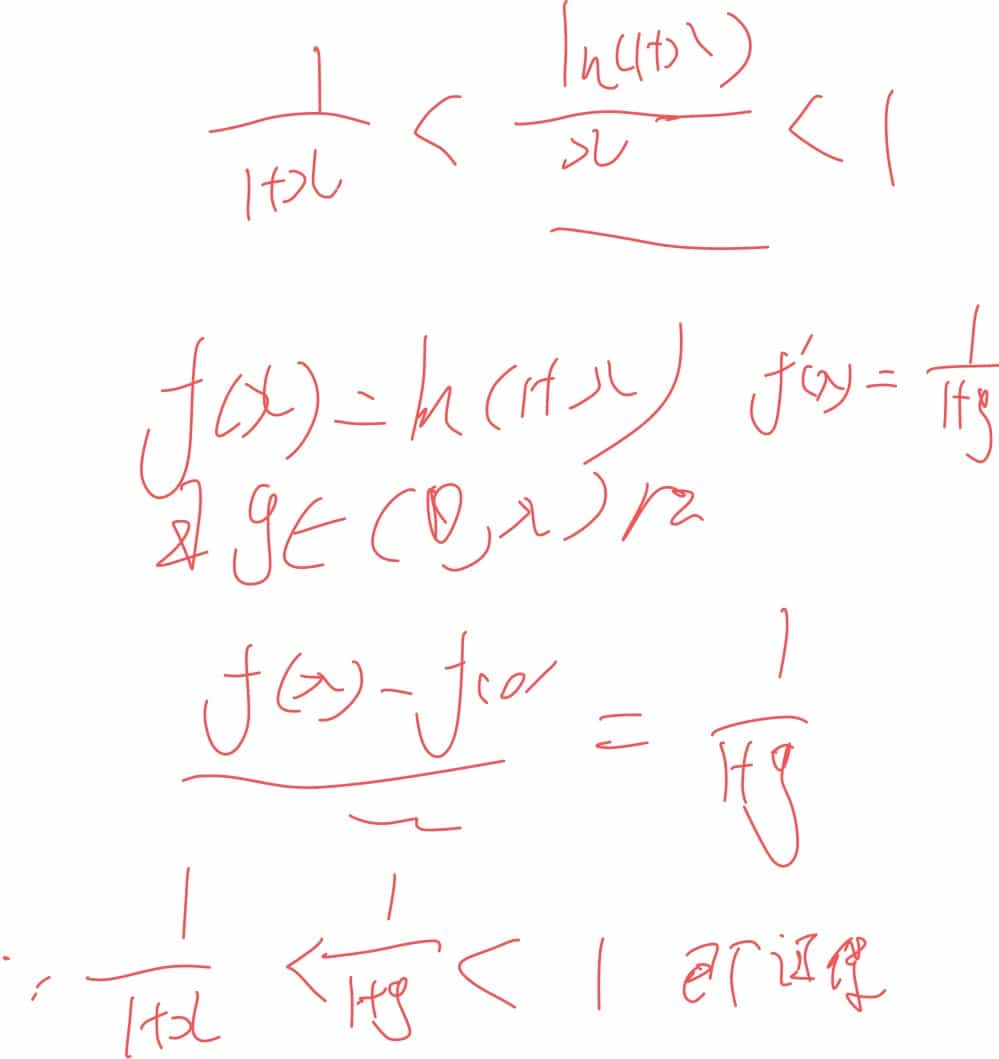 1/(1+x) < ln(1+x)/x < 1
f(x)=ln(1+x) f'(x)=1/(1+g)
g∈(0,x)
(f(x)-f(0))/x = 1/(1+g)
∵ 1/(1+x) < 1/(1+g) < 1 即可证得